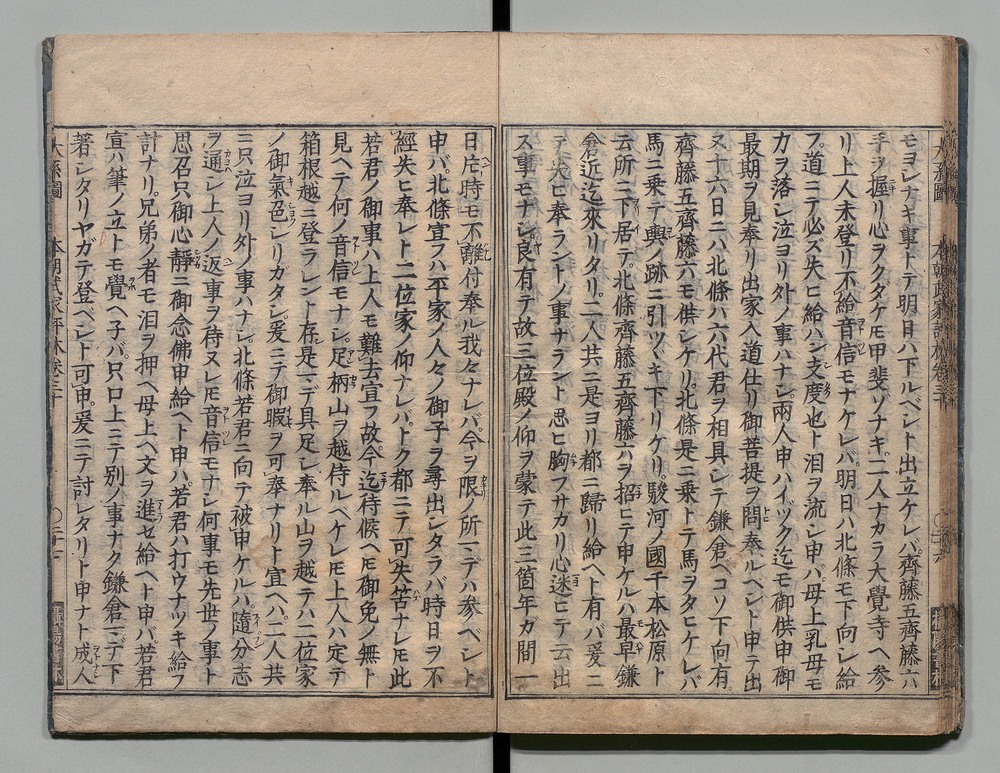 モヨシナキ事トテ明日ハ下ルベシト出立ケレバ齊藤五齊藤六
手ヲ握リ心ヲクダケドモ甲斐ゾナキ二人ナカラ大覺寺ヘ参
リ上人未登リ不給音信モナケレバ明日ハ北條モ下向シ給
フ道ニテ必ズ失ヒ給ハン支度也ト泪ヲ流シ申バ母上乳母モ
力ヲ落シ泣ヨリ外ノ事ハナシ兩人申ハイヅク迄モ御供申御
最期ヲ見奉リ出家入道仕リ御菩提ヲ問奉ルベシト申テ出
ヌ十六日ニハ北條ハ六代君ヲ相具シテ鎌倉ヘコソ下向有
齊藤五齊藤六モ供シケリ北條是ニ乗トテ馬ヲタヒケレバ
馬ニ乗テ輿ノ跡ニ引ツヾキ下リケリ駿河ノ國千本松原ト
云所ニ下居テ北條齊藤五齊藤六ヲ招ヒテ申ケルハ最早鎌
倉近迄來リタリ二人共ニ是ヨリ都ニ歸リ給ヘト有バ爰ニ
テ失ヒ奉ラントノ事ナラント思ヒ胸フサカリ心迷ヒテ云出
ス事モナシ良有テ故三位殿ノ仰ヲ蒙テ此三箇年ガ間一
日片時モ不離付奉ル我々ナレバ今ヲ限ノ所マデハ参ベシト
申バ北條宣フハ平家ノ人々ノ御子ヲ尋出シタラバ時日ヲ不
經失ヒ奉レト二位家ノ仰ナレバトク都ニテ可失筈ナレドモ此
若君ノ御事ハ上人モ難去宣フ故今迄待候ヘドモ御免ノ無ト
見ヘテ何ノ音信モナシ足柄山ヲ越侍ルベケレドモ上人ハ定テ
箱根越ニ登ラレント存是マデ具足シ奉ル山ヲ越テハ二位家
ノ御氣色シリカタシ爰ニテ御暇ヲ可奉ナリト宣ヘバ二人共
ニ只泣ヨリ外ノ事ハナシ北條若君ニ向テ被申ケルハ隨分志
ヲ通シ上人ノ返事ヲ待ヌレドモ音信モナシ何事モ先世ノ事ト
思召只御心靜ニ御念佛申給ヘト申バ若君ハ打ウナツキ給フ
計ナリ兄弟ノ者モ泪ヲ押ヘ母上ヘ文ヲ進セ給ヘト申バ若君
宣ハ筆ノ立トモ覺ヘ子バ只口上ニテ別ノ事ナク鎌倉マデ下
著シタリヤガテ登ベシト可申爰ニテ討レタリト申ナト成人